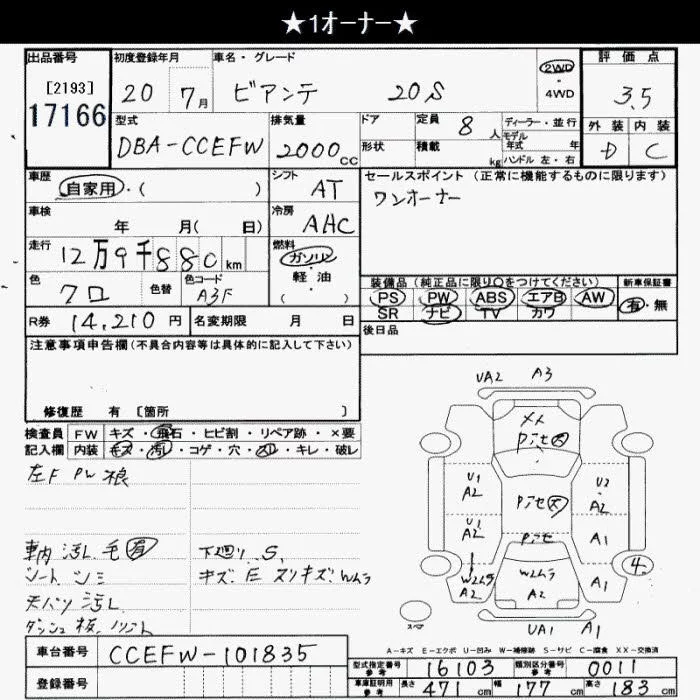 ★1オーナー★
出品番号 初度登録年月 車名・グレード 評価点
[2193] 17166 20 7月 ビアンテ 20S 2WD ・4WD 3.5
型式 排気量 ドア 定員 8人 ディーラー・並行 外装 内装
DBA-CCEFW 2000cc 形状 積載 kg モデル年式 年 ハンドル 左・右 D C
車歴 シフト セールスポイント (正常に機能するものに限ります)
自家用・( ) AT ワンオーナー
車検 年 月( 日) 冷房 AHC
走行 12万9千880km 燃料 ガソリン・軽・油( )
色 クロ 色替 色コード A3F
装備品 (純正品に限り○をつけてください) 新車保証書
PS PW ABS エアB AW 有・無
SR ナビ TV カワ
R券 14,210円 名変期限 月 日 後日品
注意事項申告欄(不具合内容等は具体的に記入して下さい)
修復歴 有 [箇所 ]
検査員 FW キズ・飛石・ヒビ割・リペア跡・×要
記入欄 内装 キズ・汚レ・コゲ・穴・スレ・キレ・破レ
左F PW
車内 汚レ 毛 有 下廻り S,
シート シミ キズ E スリキズ Wムラ
天バリ 汚レ
ダッシュ
UA2 A3
U1 A2 U2 A2
U1 A2 A1
W2ムラ A2 W2ムラ A2 A1 4
スペア UA1 A1
A-キズ E-エクボ U-凹み W-補修跡 S-サビ C-腐食 XX-交換済
車台番号 CCEFW-101835
型式指定番号 参考 16103 類別区分番号 参考 0011
登録番号
車庫証明用 参考 長さ 471cm 幅 177cm 高さ 183cm